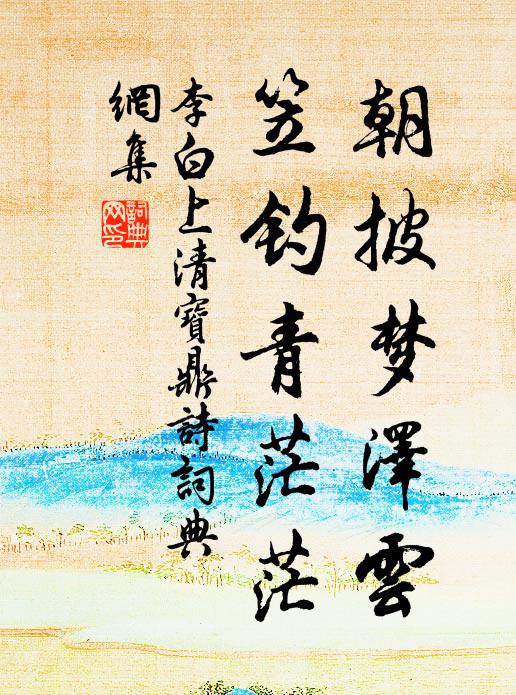 朝披梦澤雲
笠钓青茫茫
李白上清寶鼎詩詞典
網集
詞典
网印